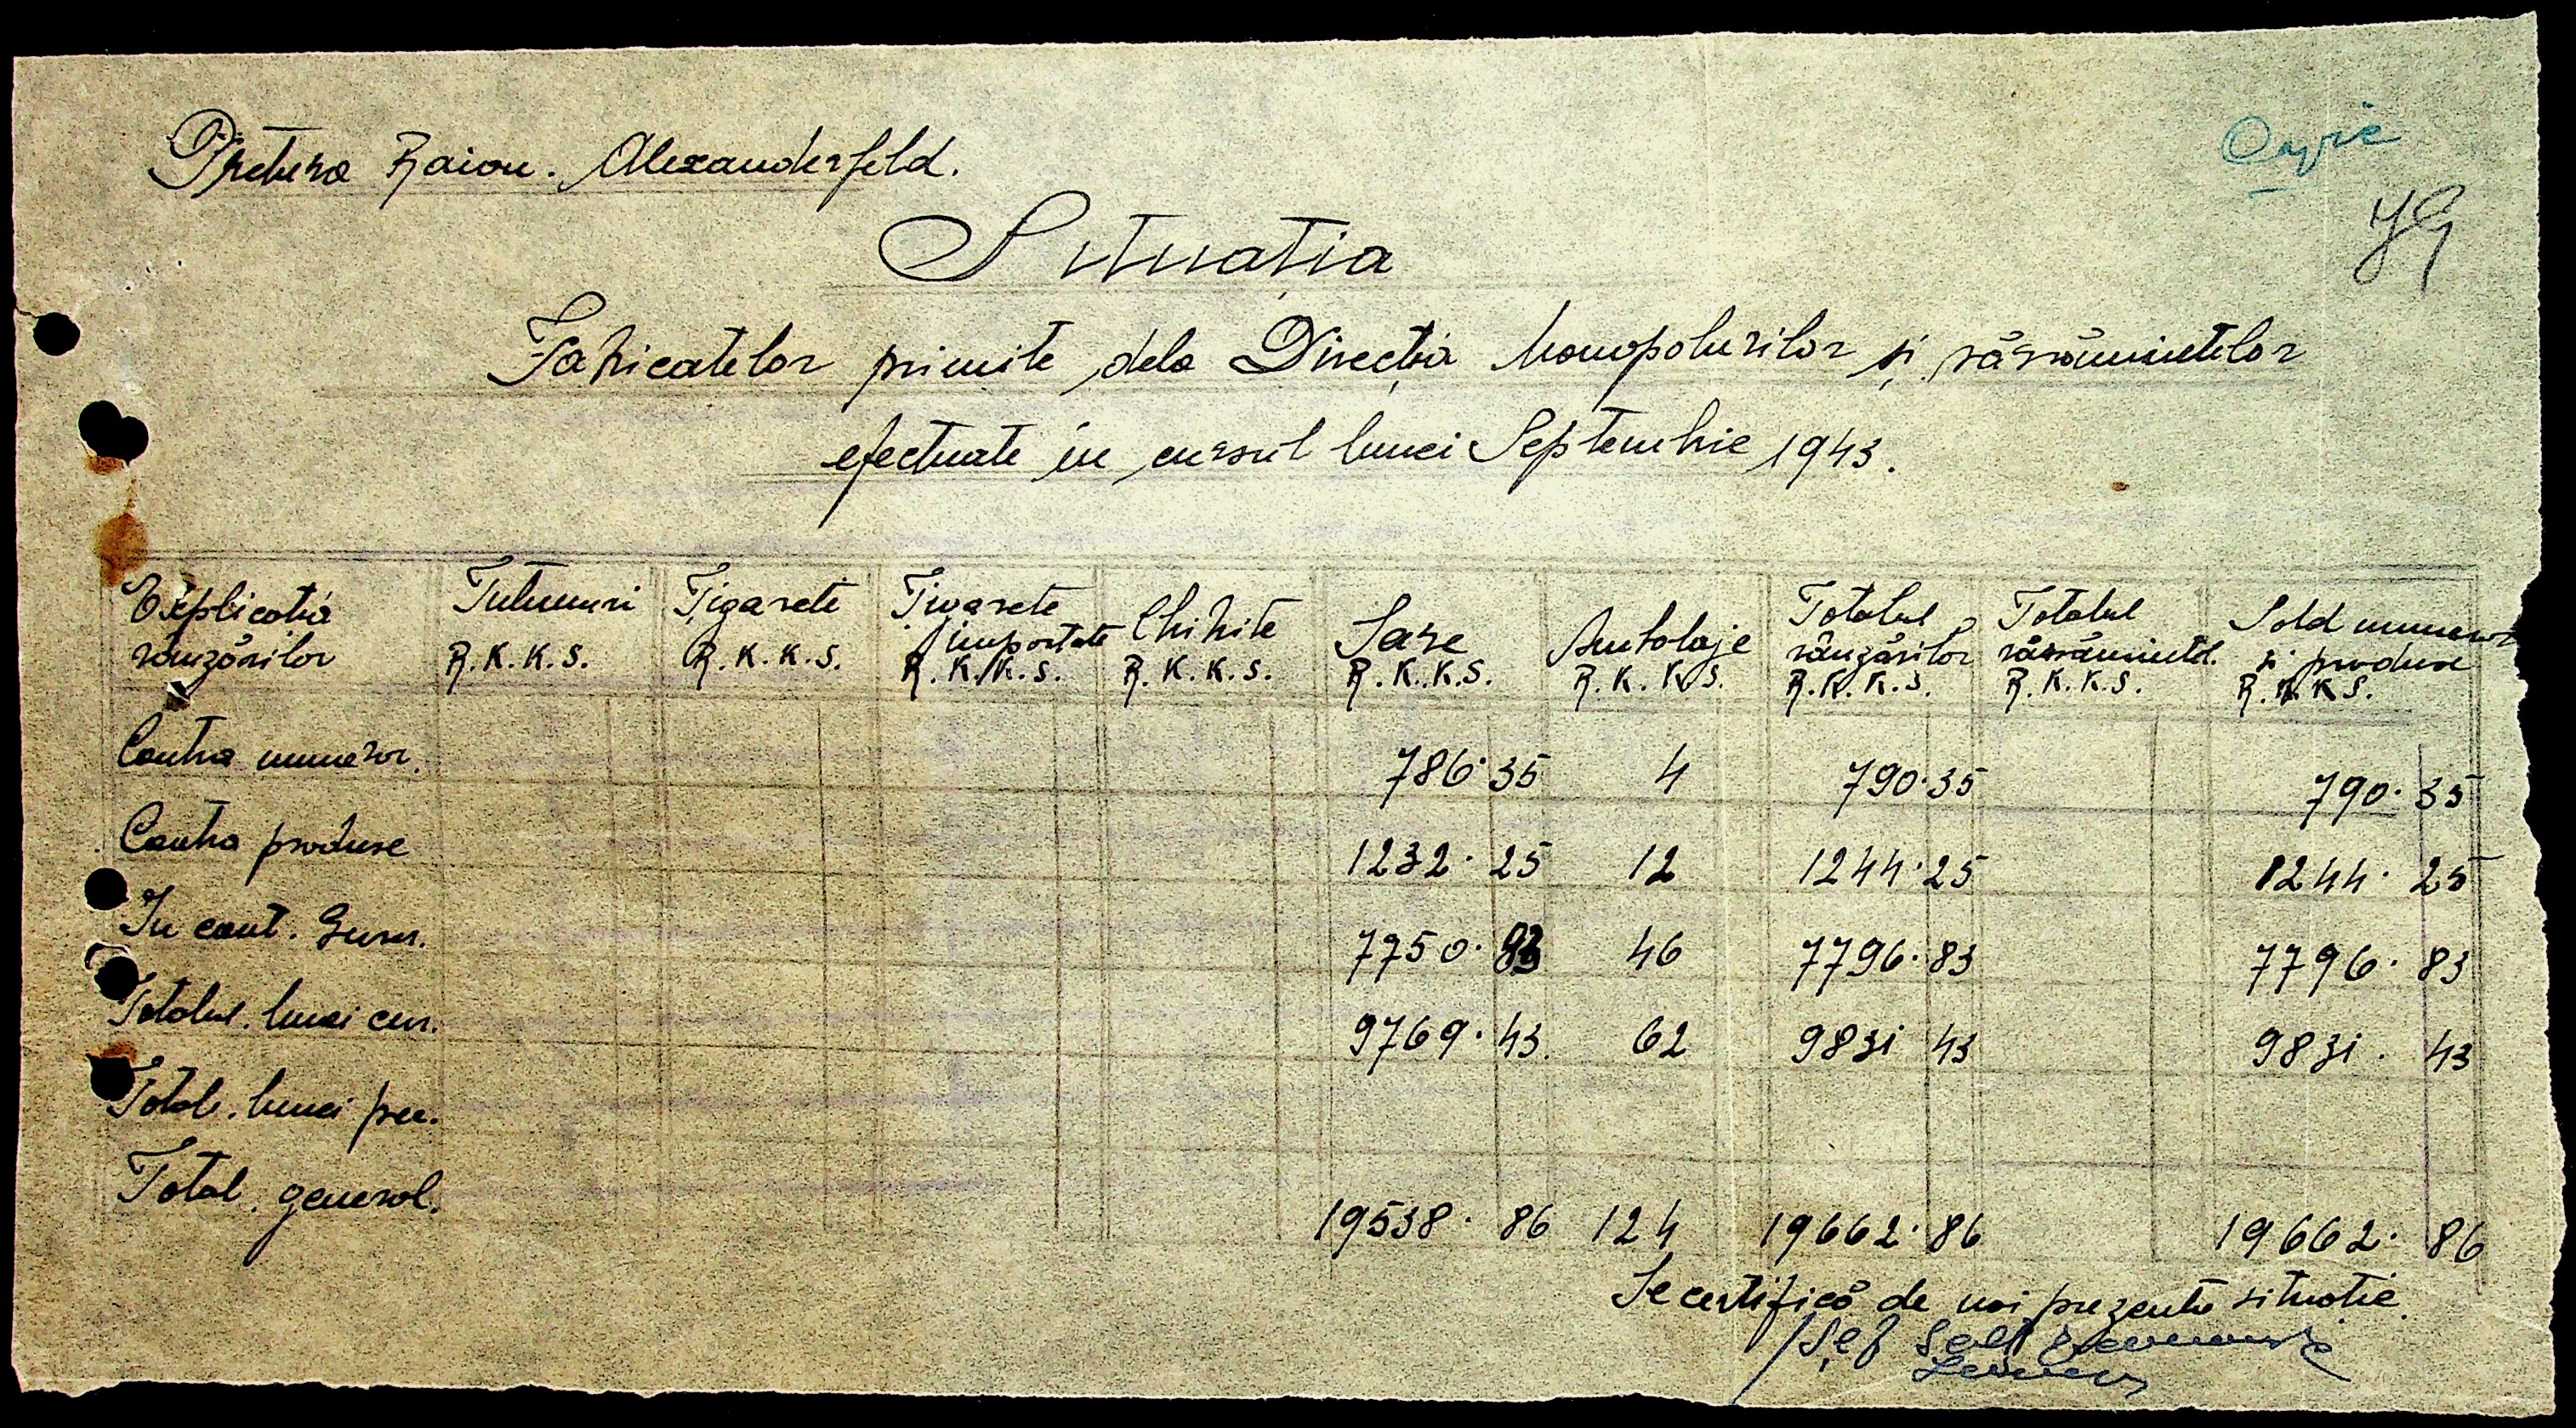 Pretura Raion. Alexanderfeld.
Copie
79
Situația
Fabricatelor primite dela Direcția Monopolurilor și vărsămintelor
efectuate in cursul lunei Septembrie 1943.
Explicația vânzărilor
Tutunuri R.K.K.S.
Țigarete R.K.K.S.
Țigarete importate R.K.K.S.
Chibrite R.K.K.S.
Sare R.K.K.S.
Ambalaje R.K.K.S.
Totalul vânzărilor R.K.K.S.
Totalul vărsămintel. R.K.K.S.
Sold numerar și produse R.K.K.S.
Contra numerar. 786·35 4 790·35 790·35
Contra produse 1232·25 12 1244·25 1244·25
In cont. Guver. 7750·83 46 7796·83 7796·83
Totalul. lunei cur. 9769·43. 62 9831 43 9831. 43
Total. lunei prec.
Total. general. 19538·86 124 19662·86 19662·86
Se certifică de noi prezenta situatie.
Șef